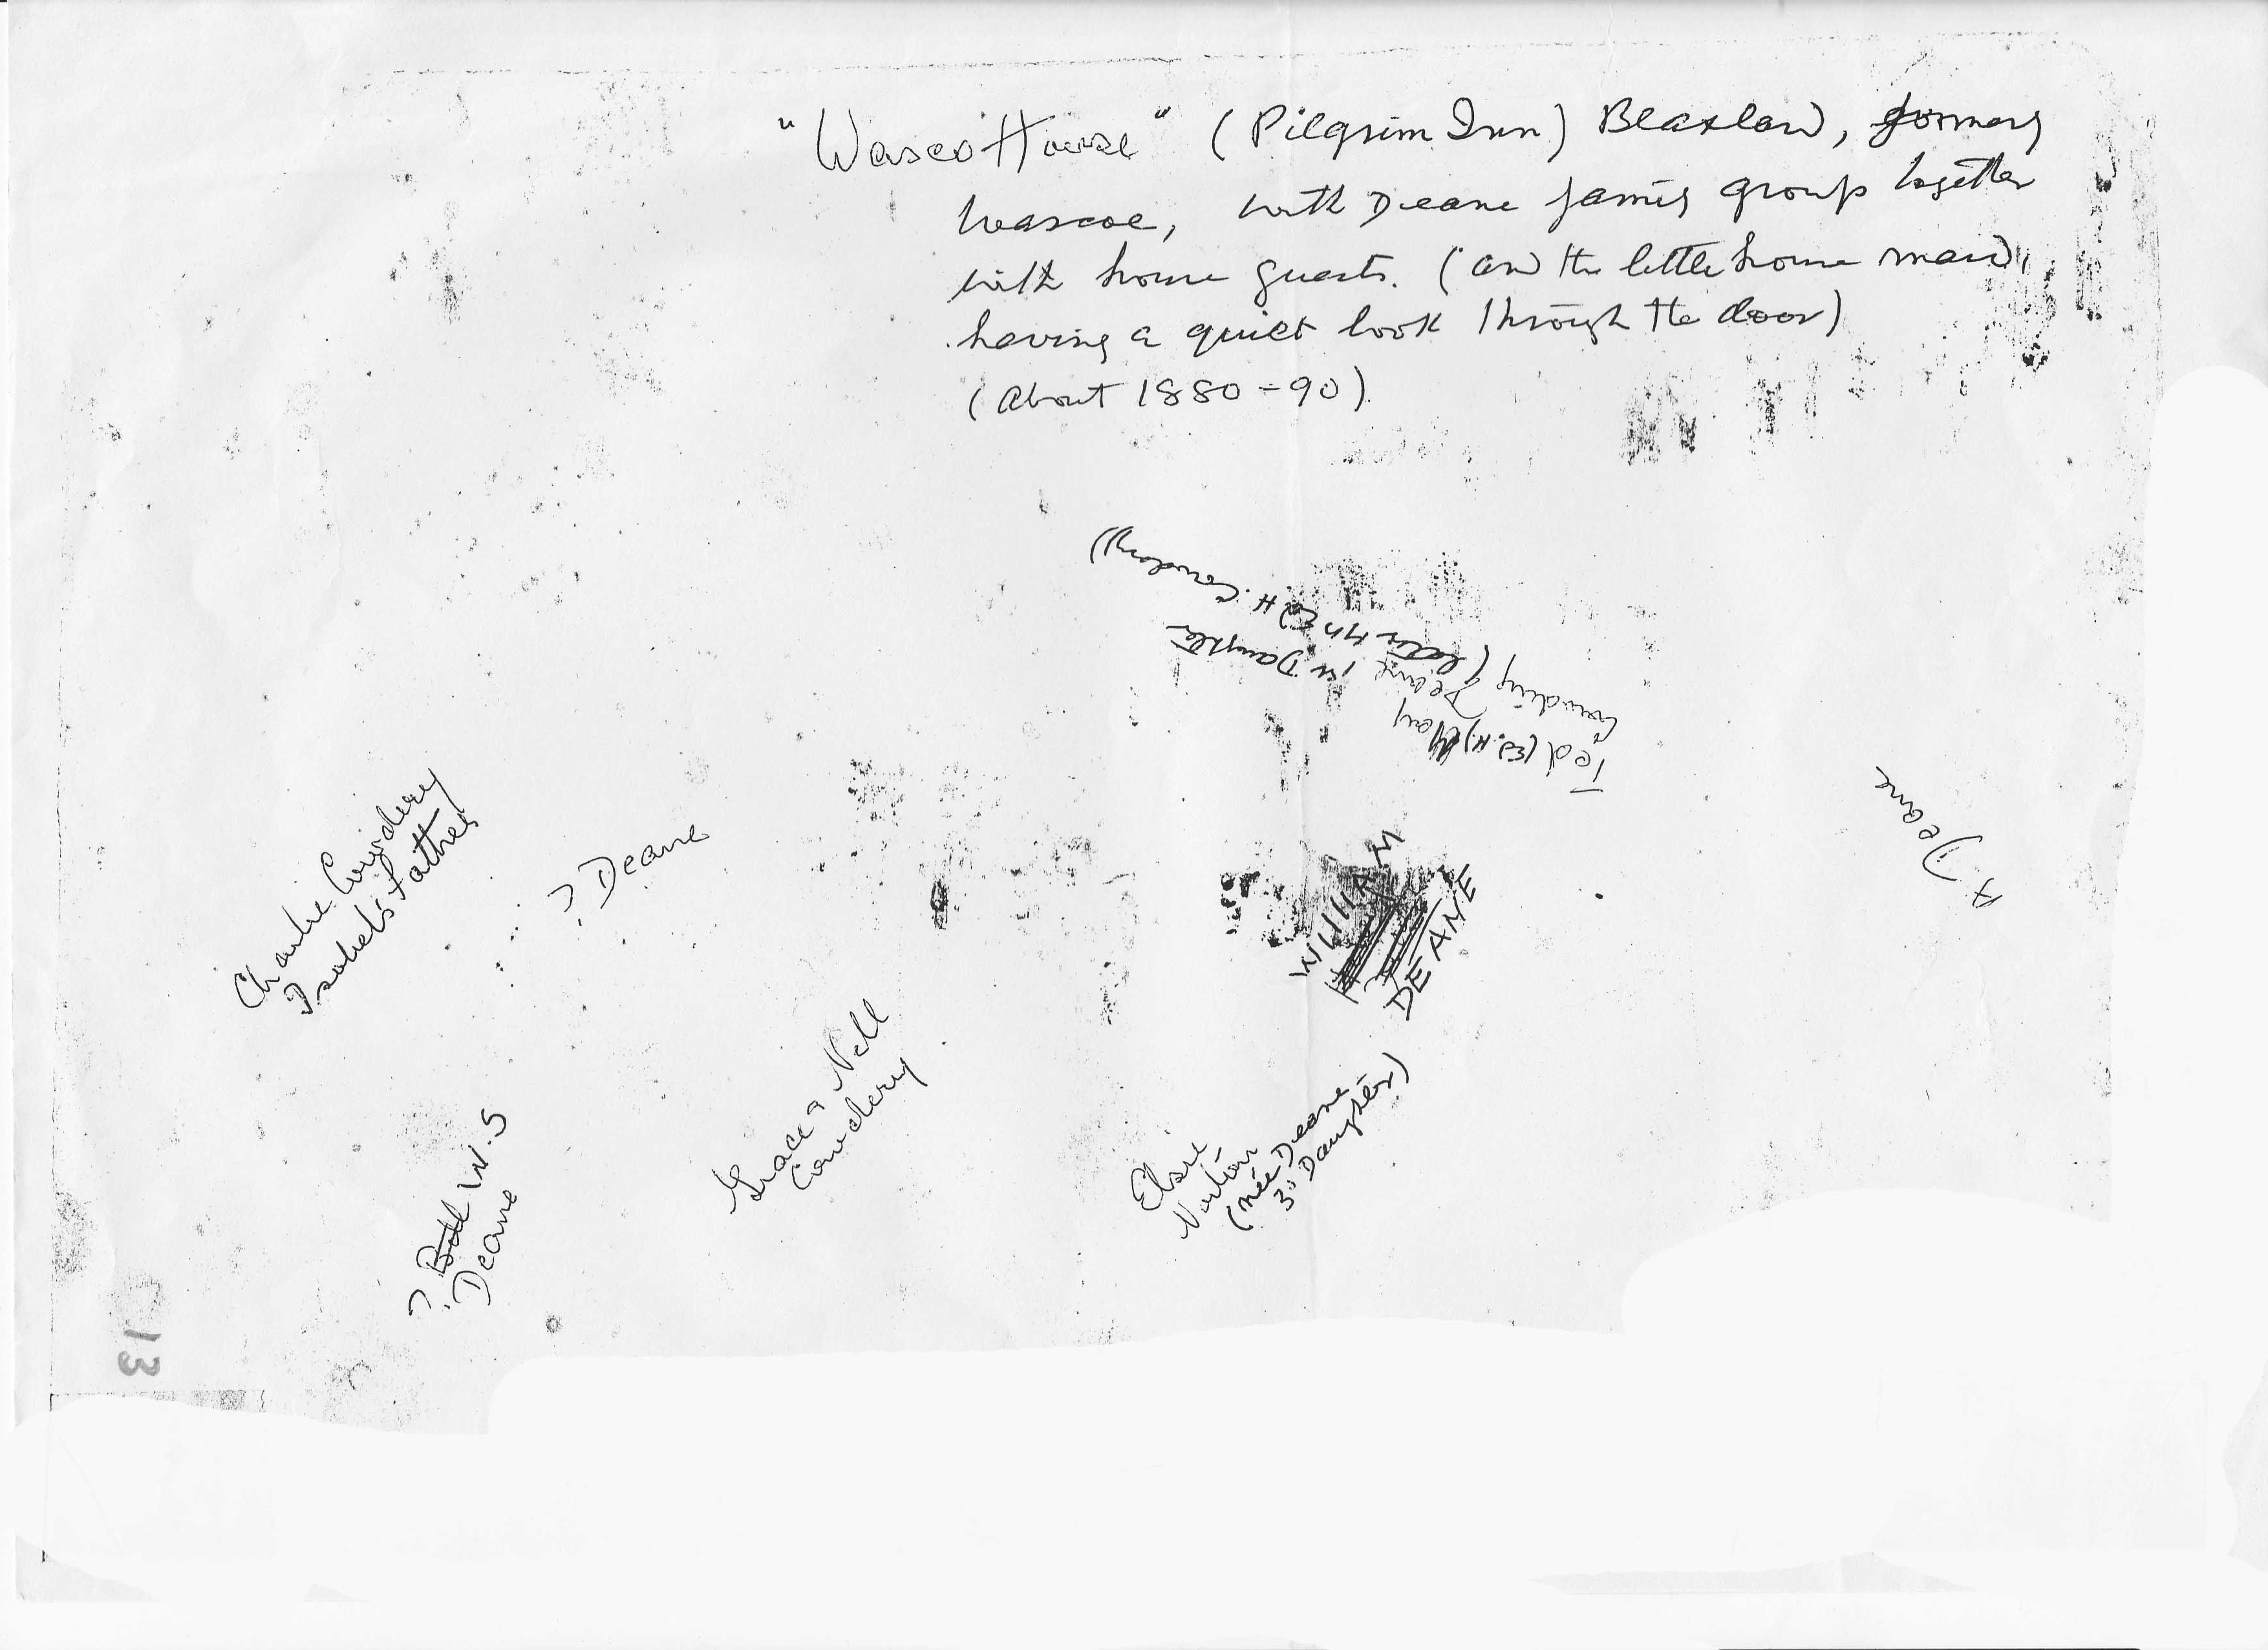 "Wasco House" (Pilgrim Inn) Blaxland, formerly
Wascoe, with Deane family group together
with house guests. (and the little house maid,
having a quiet look through the door)
(About 1880-90)
(later Mrs Ed H. Cowdery))
Ted (Ed. H.)
Cowdery
May
Deane, 1st Daughter
A Deane
Charlie Cowdery
Isobel's father
? Deane
WILLIAM
DEANE
Grace & Nell
Cowdery
? W.S
Deane
Elsie
Norton
(née Deane
3rd Daughter)
13